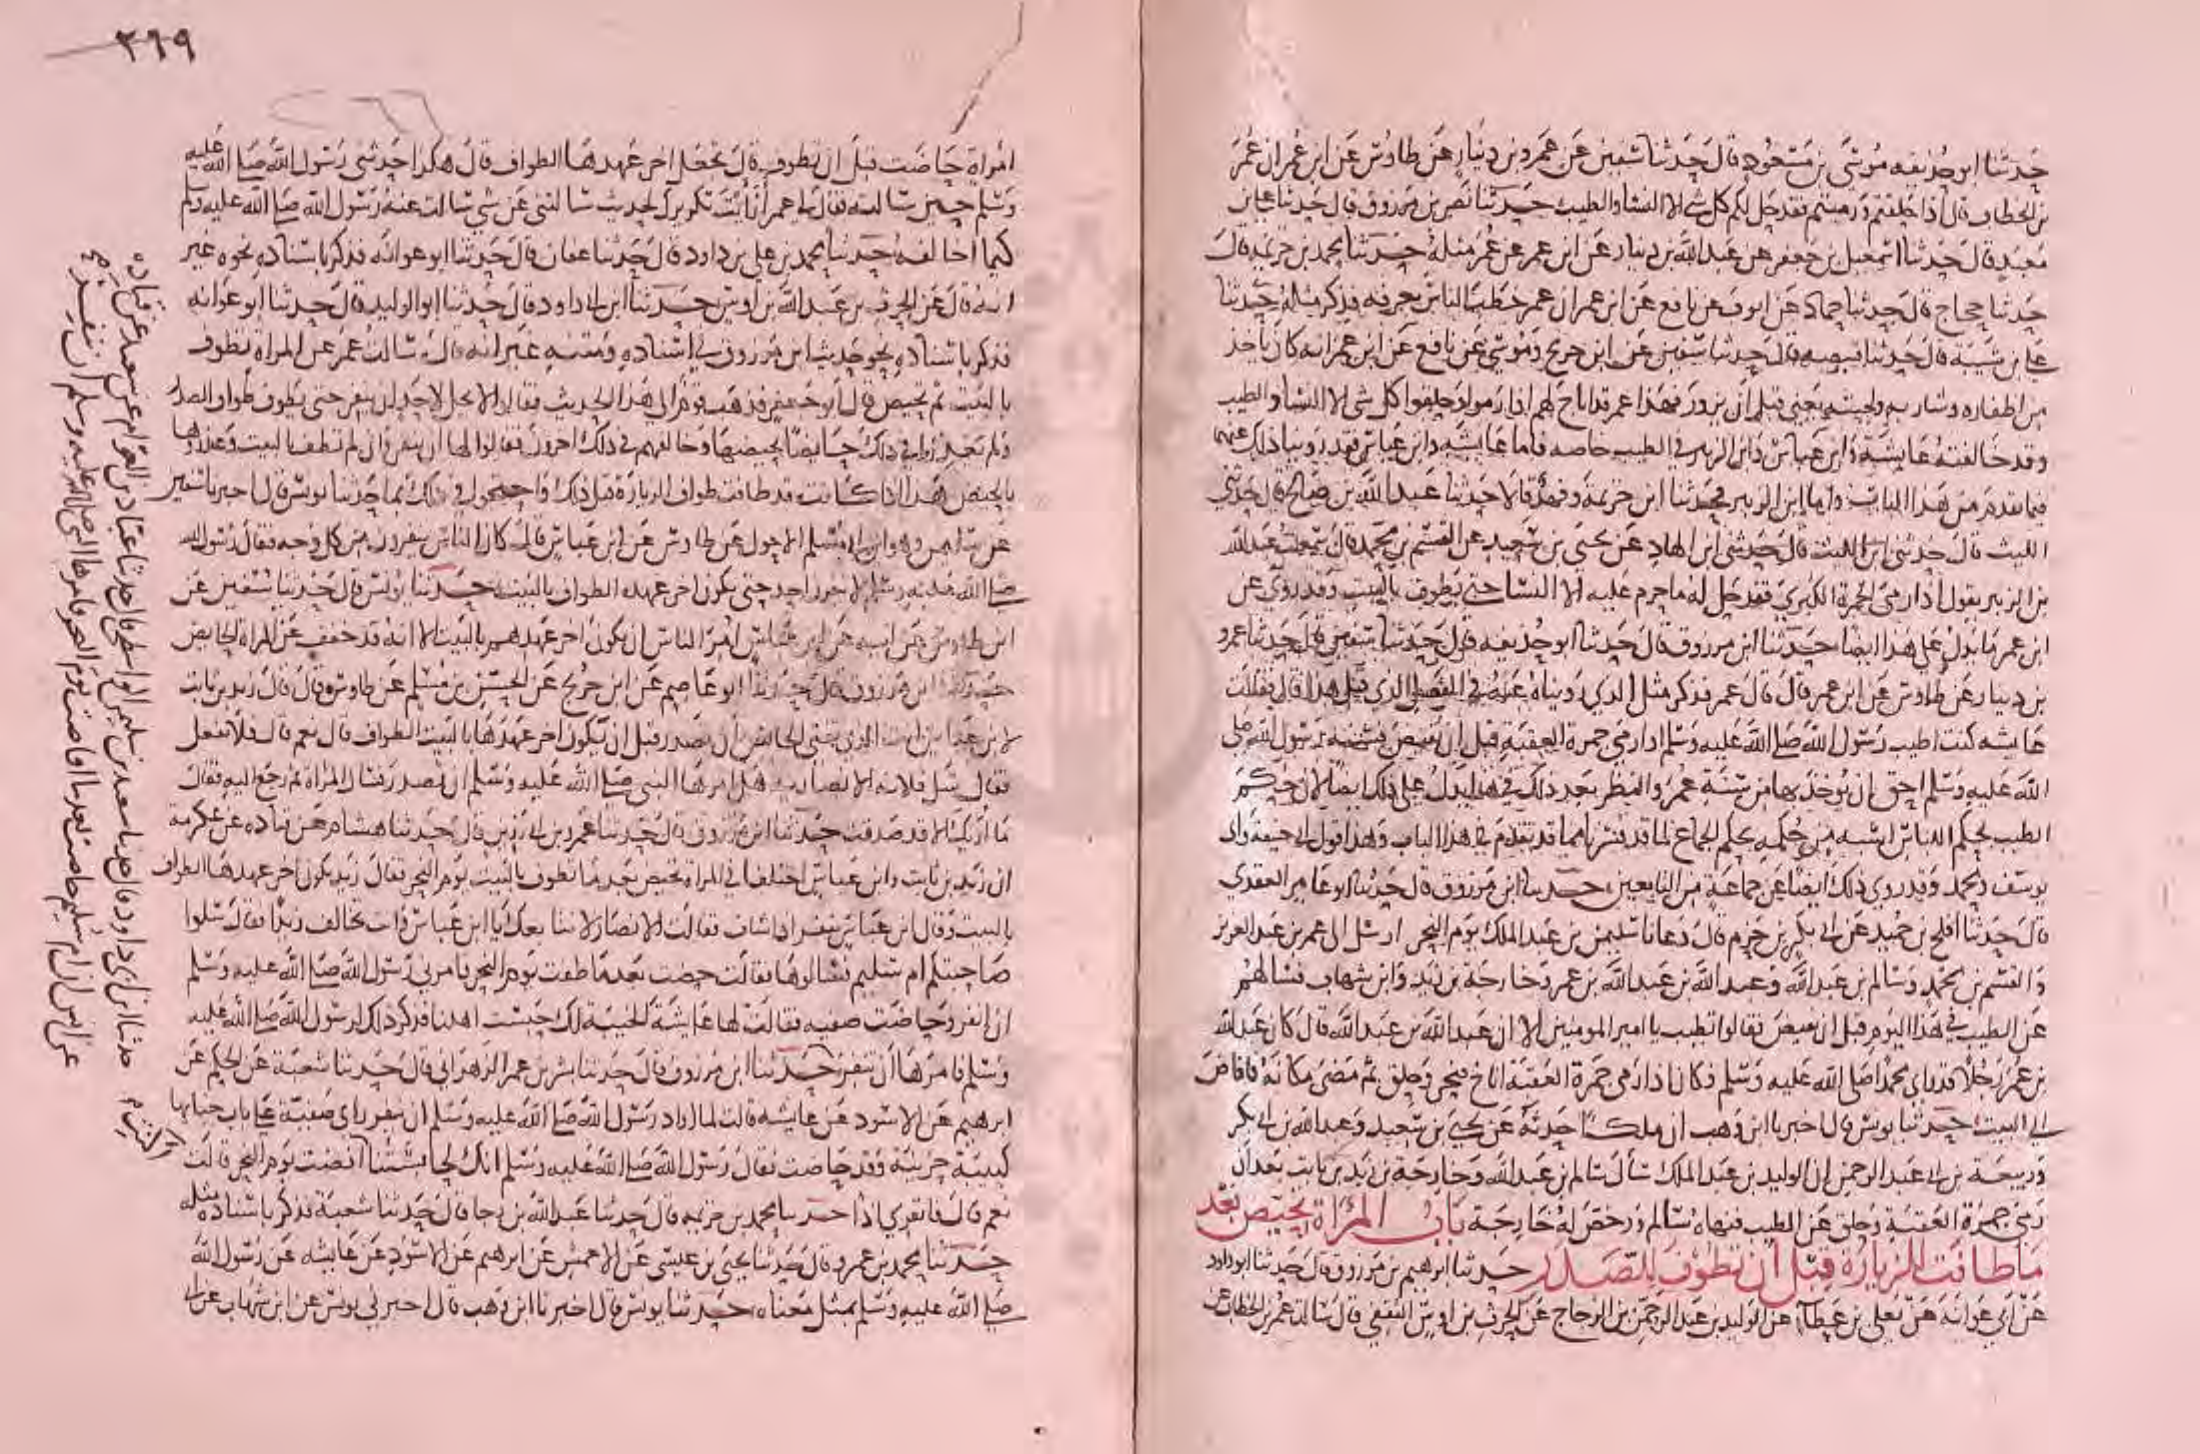 حدثنا ابو حذيفه موسى بن مسعود قال حدثنا سفين عن عمرو بن دينار عن طاوس عن ابن عمر ان عمر
بن الخطاب قال اذا حلقتم ورميتم فقد حل لكم كل شي الا النسا والطيب حدثنا نصر بن مرزوق قال حدثنا علي بن
معبد قال حدثنا اسمعيل بن جعفر عن عبد الله بن دينار عن ابن عمر عن عمر مثله حدثنا محمد بن خزيمه قال
حدثنا حجاج قال حدثنا حماد عن ايوب عن نافع عن ابن عمر ان عمر خطب الناس بعرفه فذكر مثله حدثنا
علي بن شيبه قال حدثنا قبيصه قال حدثنا سفين عن ابن جريج وموسى عن نافع عن ابن عمر انه كان ياخذ
من اظفاره وشاربه ولحيته يعني قبل ان يزور فهذا عمر قد اباح لهم اذا رموا وحلقوا كل شي الا النسا والطيب
وقد خالفته عايشة وابن عباس وابن الزبير في الطيب خاصه فاما عايشه وابن عباس فقد روينا ذلك عنهما
فيما تقدم من هذا الباب واما ابن الزبير فحدثنا ابن خزيمه وفهد قالا حدثنا عبد الله بن صالح قال حدثني
الليث قال حدثني ابن الهاد عن يحيى بن سعيد عن القسم بن محمد قال سمعت عبد الله
بن الزبير يقول اذا رمى الجمرة الكبرى فقد حل له ما حرم عليه الا النسا حتى يطوف بالبيت وقد روي عن
ابن عمر ما يدل على هذا ايضا حدثنا ابن مرزوق قال حدثنا ابو حذيفه قال حدثنا سفين قال حدثنا عمرو
بن دينار عن طاوس عن ابن عمر قال قال عمر فذكر مثل الذي رويناه عنه في الفصل الذي قبل هذا قال فقالت
عايشه كنت اطيب رسول الله صلى الله عليه وسلم اذا رمى جمرة العقبة قبل ان يفيض فسنه رسول الله صلى
الله عليه وسلم احق ان يوخذ بها من سنة عمر والنظر بعد ذلك في هذا يدل على ذلك ايضا لان حكم
الطيب بحكم اللباس اشبه من حكمه بحكم الجماع لما قد فسرنا مما قد تقدم في هذا الباب وهذا قول ابي حنيفه وابي
يوسف ومحمد وقد روي ذلك ايضا عن جماعة من التابعين حدثنا ابن مرزوق قال حدثنا ابو عامر العقدي
قال حدثنا افلح بن حميد عن ابي بكر بن حزم قال دعانا سليمن بن عبد الملك يوم النحر ارسل الى عمر بن عبد العزيز
والقسم بن محمد وسالم بن عبد الله وعبد الله بن عبد الله بن عمر وخارجة بن زيد وابن شهاب فسالهم
عن الطيب في هذا اليوم قبل ان يفيض فقالوا تطيب يا امير المومنين الا ان عبد الله بن عبد الله قال كان عبد الله
بن عمر رجلا قد راى محمدا صلى الله عليه وسلم فكان اذا رمى جمرة العقبة اناخ فنحر وحلق ثم مضى مكانه فافاض
الى البيت حدثنا يونس قال اخبرنا ابن وهب ان ملكا حدثه عن يحيى بن سعيد وعبد الله بن ابي بكر
وربيعة بن ابي عبد الرحمن ان الوليد بن عبد الملك سال سالم بن عبد الله وخارجة بن زيد بن ثابت بعد ان
رمى جمرة العقبة وحلق عن الطيب فنهاه سالم ورخص له خارجة باب المراة تحيض بعد
ما طافت للزيارة قبل ان تطوف للصدر حدثنا ابرهيم بن مرزوق قال حدثنا ابو داود
عن ابي عوانة عن يعلى بن عطاء عن الوليد بن عبد الرحمن بن الزجاج عن الحرث بن اوس الثقفي قال سالت عمر بن الخطاب عن
٣٦٩
امراة حاضت قبل ان تطوف قال تجعل اخر عهدها الطواف قال هكذا حدثني رسول الله صلى الله عليه
وسلم حين سالته فقال لي عمر سالتني عن شي سالت عنه رسول الله صلى الله عليه وسلم
كيما اخالفه حدثنا محمد بن علي بن داود قال حدثنا عفان قال حدثنا ابو عوانه فذكر باسناده نحوه غير
انه قال عن الحرث بن عبد الله بن اوس حدثنا ابن ابي داود قال حدثنا ابو الوليد قال حدثنا ابو عوانه
فذكر باسناده نحو حديث ابن مرزوق في اسناده ومتنه غير انه قال سالت عمر عن المراة تطوف
بالبيت ثم تحيض قال ابو جعفر فذهب قوم الى هذا الحديث فقالوا لا يحل لاحد ان ينفر حتى يطوف طواف الصدر
ولم يعذروا في ذلك حايضا بحيضها وخالفهم في ذلك اخرون فقالوا لها ان تنفر وان لم تطف بالبيت وعذروها
بالحيض هذا اذا كانت قد طافت طواف الزيارة قبل ذلك واحتجوا في ذلك بما حدثنا يونس قال اخبرنا سفين
عن سليمن وهو ابن ابي مسلم الاحول عن طاوس عن ابن عباس قال كان الناس ينفرون من كل وجه فقال رسول الله
صلى الله عليه وسلم لا ينفرن احد حتى يكون اخر عهده الطواف بالبيت حدثنا يونس قال حدثنا سفين عن
ابن طاوس عن ابيه عن ابن عباس امر الناس ان يكون اخر عهدهم بالبيت الا انه قد خفف عن المراة الحايض
حدثنا ابن مرزوق قال حدثنا ابو عاصم عن ابن جريج عن الحسن بن مسلم عن طاوس قال قال زيد بن ثابت
لابن عباس انت الذي تفتي الحائض ان تصدر قبل ان يكون اخر عهدها بالبيت الطواف قال نعم قال فلا تفعل
فقال سل فلانه الانصارية هل امرها النبي صلى الله عليه وسلم ان تصدر فسال المراة ثم رجع اليه فقال
ما اراك الا قد صدقت حدثنا ابن مرزوق قال حدثنا عمرو بن ابي رزين قال حدثنا هشام عن قتاده عن عكرمة
ان زيد بن ثابت وابن عباس اختلفا في المراة تحيض بعد ما تطوف بالبيت يوم النحر فقال زيد يكون اخر عهدها الطواف
بالبيت وقال ابن عباس تنفر ان شات فقالت الانصار لا نتابعك يا ابن عباس وانت تخالف زيدا فقال سلوا
صاحبتكم ام سليم فسالوها فقالت حضت بعد ما طفت يوم النحر فامرني رسول الله صلى الله عليه وسلم
ان انفر وحاضت صفيه فقالت لها عايشة الخيبة لك حبست اهلنا فذكر ذلك لرسول الله صلى الله عليه
وسلم فامرها ان تنفر حدثنا ابن مرزوق قال حدثنا بشر بن عمر الزهراني قال حدثنا شعبة عن الحكم عن
ابرهيم عن الاسود عن عايشه قالت لما اراد رسول الله صلى الله عليه وسلم ان ينفر راى صفية على باب خبايها
كييبة حزينة وقد حاضت فقال رسول الله صلى الله عليه وسلم انك لحابستنا افضت يوم النحر قالت
نعم قال فانفري اذا حدثنا محمد بن خزيمه قال حدثنا عبد الله بن رجا قال حدثنا شعبة فذكر باسناده مثله
حدثنا محمد بن عمرو قال حدثنا يحيى بن عيسى عن الاعمش عن ابرهيم عن الاسود عن عايشه عن رسول الله
صلى الله عليه وسلم بمثل معناه حدثنا يونس قال اخبرنا ابن وهب قال اخبرني يونس عن ابن شهاب عن ابي
حدثنا ابن ابي داود قال حدثنا سعيد بن سليمن الواسطي قال حدثنا عباد بن العوام عن سعيد عن قتاده
عن انس ان ام سليم حاضت بعد ما افاضت يوم النحر فامرها النبي صلى الله عليه وسلم ان تنفر